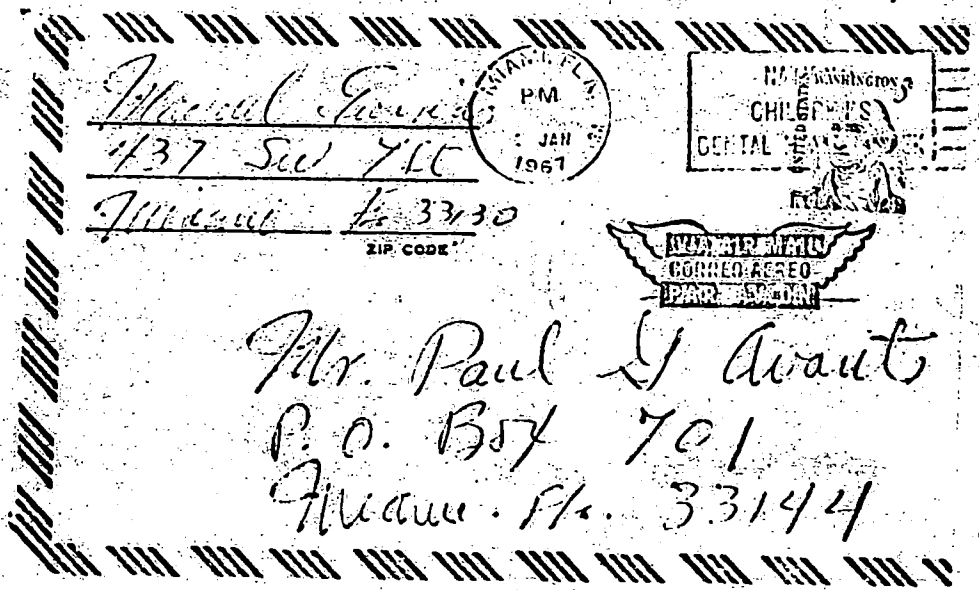 437 SW 7 St
Miami Fla 33130
ZIP CODE
MIAMI, FLA.
PM
JAN
1967
WASHINGTON
CHILDREN'S
DENTAL HEALTH WEEK
VIA AIR MAIL
CORREO AEREO
PAR AVION
Mr. Paul G Avant
P. O. Box 701
Miami. Fla. 33144